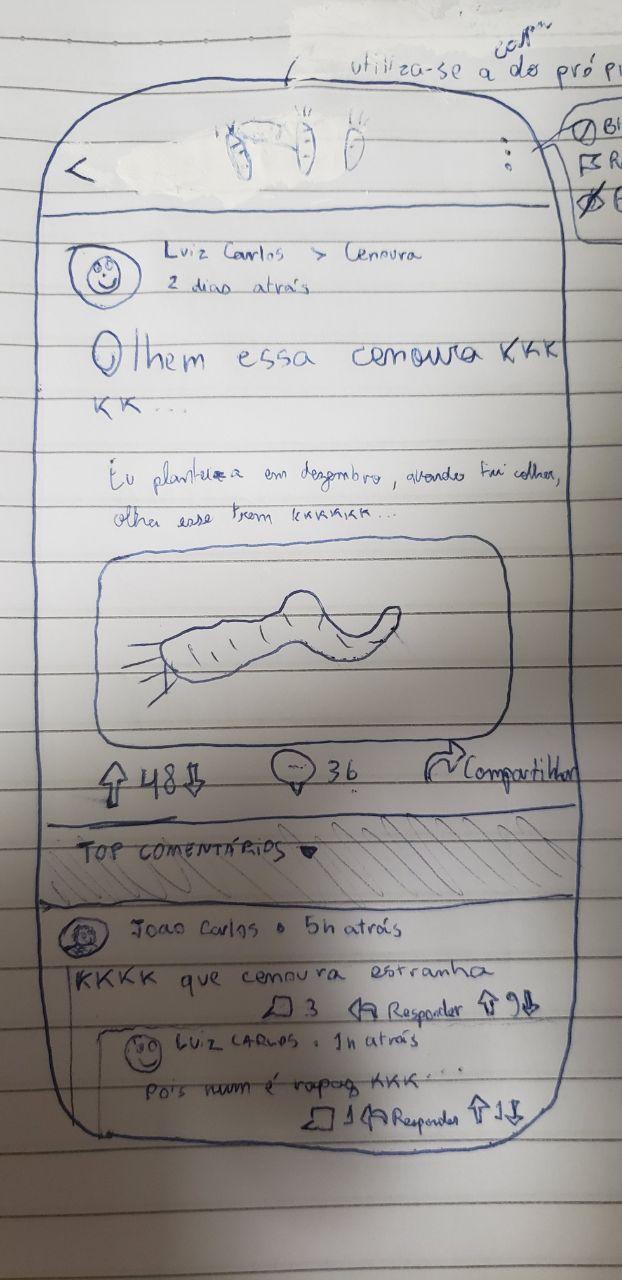 utiliza-se a do pró
<
Luiz Carlos > Cenoura
2 dias atrás
Olhem essa cenoura KKK
KK...
Eu plantei em dezembro, quando fui colher,
olha esse trem KKKKKK...
48
36
Compartilhar
TOP COMENTÁRIOS
Joao Carlos • 5h atrás
KKKK que cenoura estranha
3 Responder 9
LUIZ CARLOS • 1h atrás
Pois num é rapaz KKK....
1 Responder 1